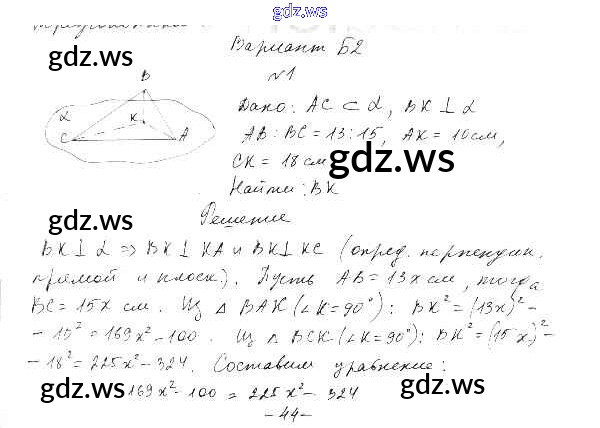 gdz.ws
Вариант Б2
№1
Дано: AC ⊂ α, BK ⊥ α
AB : BC = 13 : 15, AK = 10 см,
CK = 18 см
Найти: BK
B
α
K
C
A
Решение
BK ⊥ α ⇒ BK ⊥ KA и BK ⊥ KC (опред. перпендик.
прямой и плоск.). Пусть AB = 13x см, тогда
BC = 15x см. Из △ BAK (∠K = 90°): BK² = (13x)² –
– 10² = 169x² – 100. Из △ BCK (∠K = 90°): BK² = (15x)² –
– 18² = 225x² – 324. Составим уравнение:
169x² – 100 = 225x² – 324
– 44 –
gdz.ws
gdz.ws
gdz.ws
gdz.ws
gdz.ws
gdz.ws